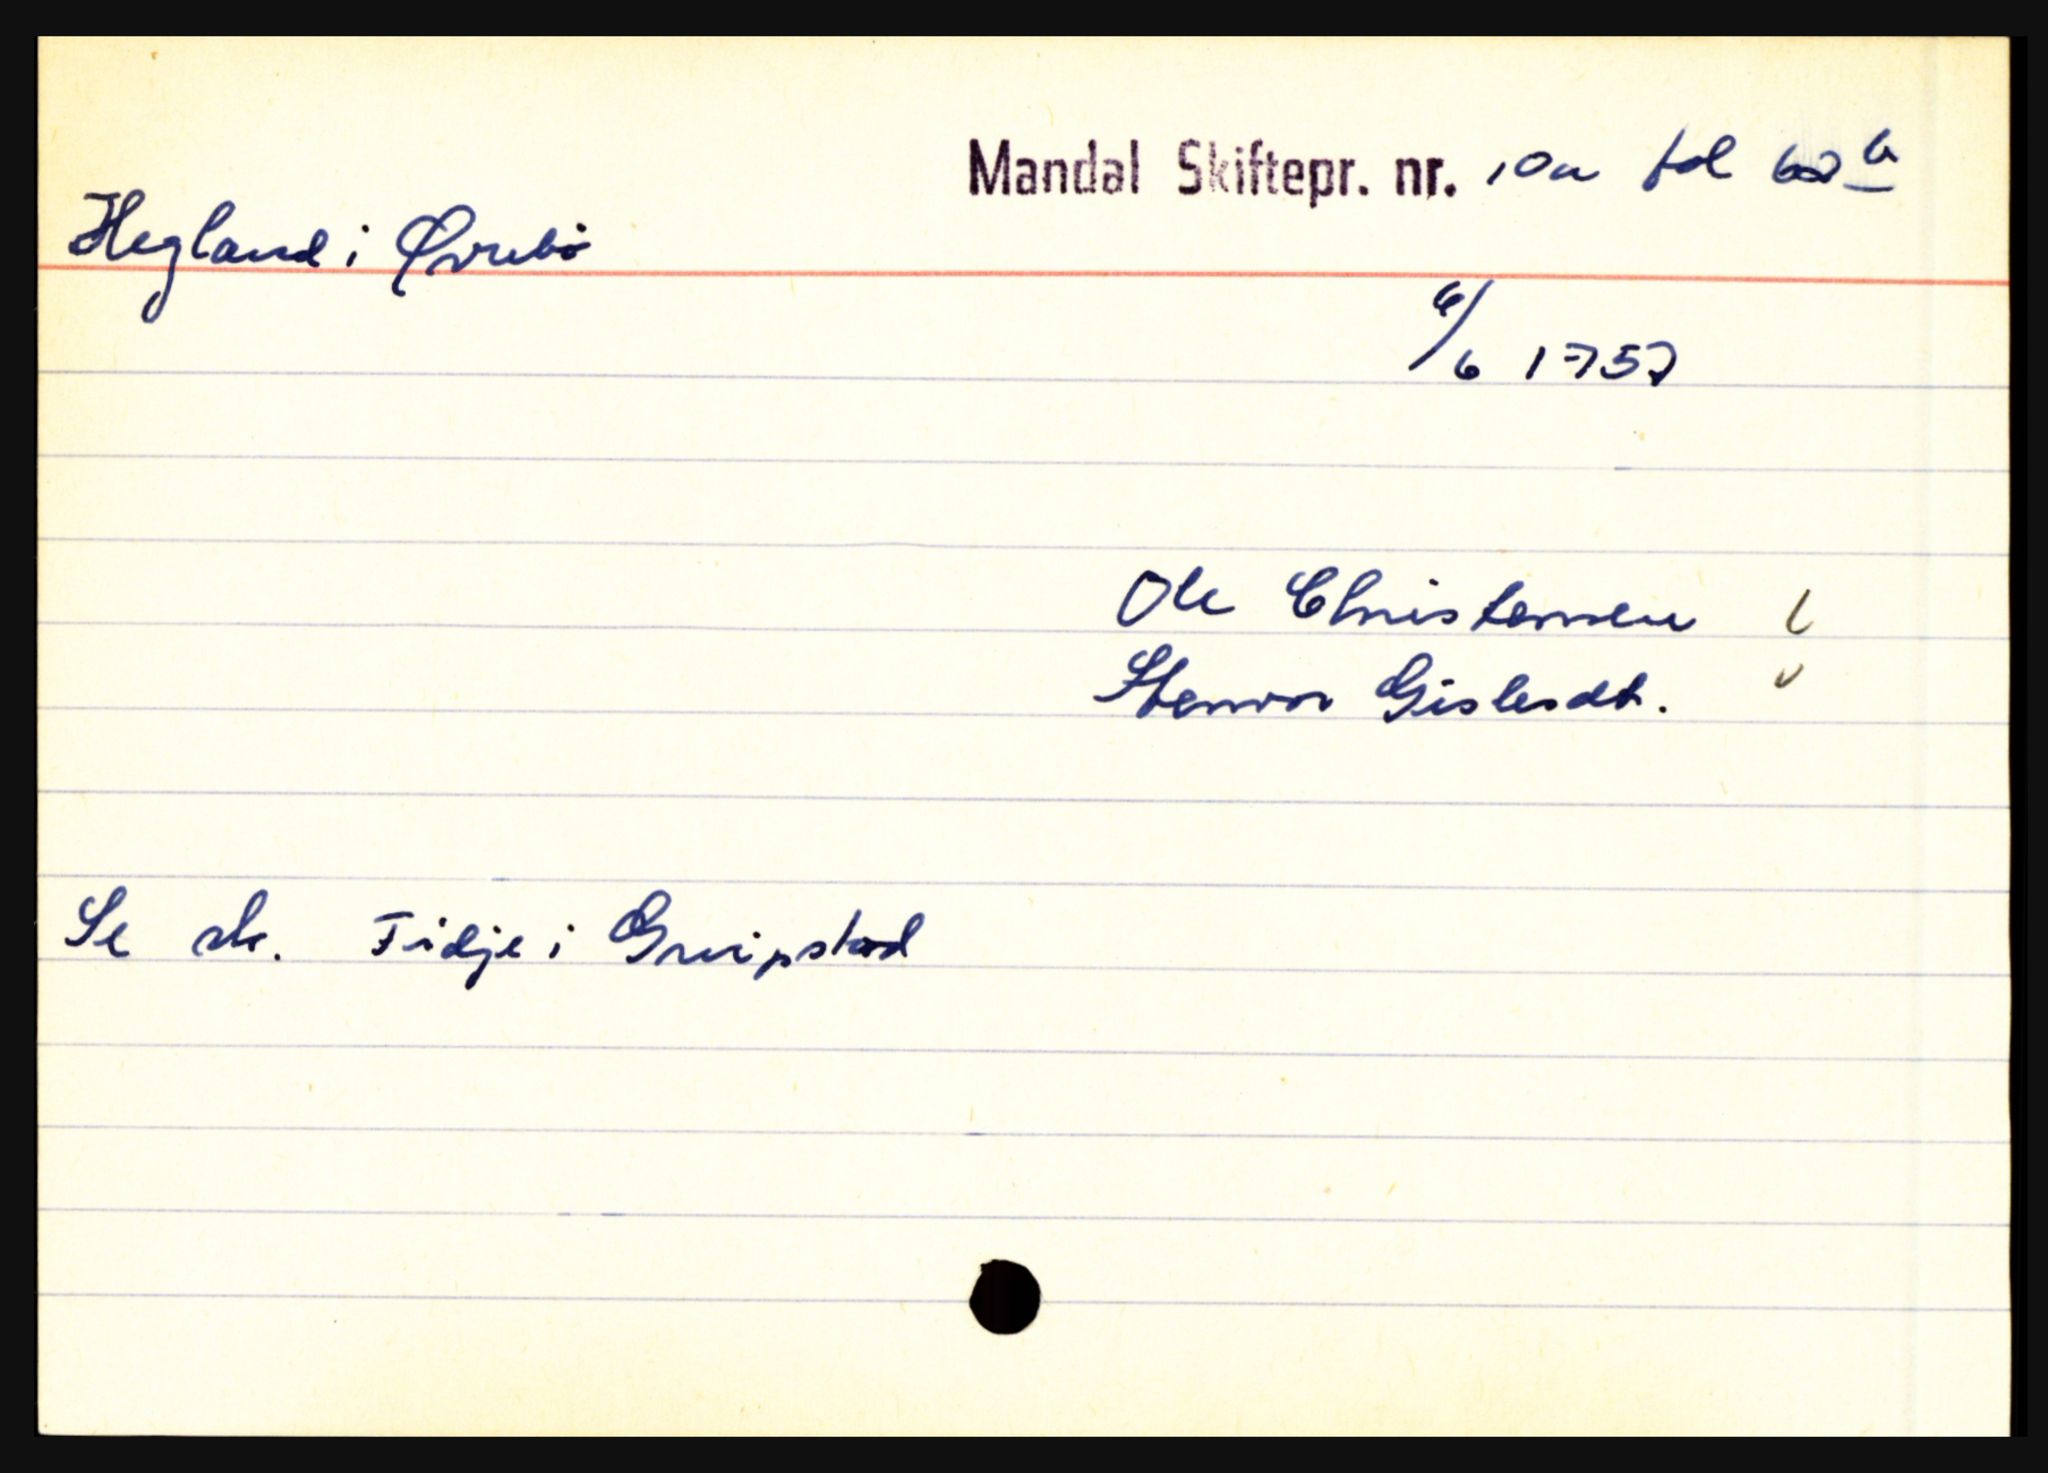 Mandal Skiftepr. nr. 10a fol b
Hegland i Øvrebö
6/6 1757
Ole Christensen
Stenvor Gislesdt.
Se sk. Fidje i Greipstad